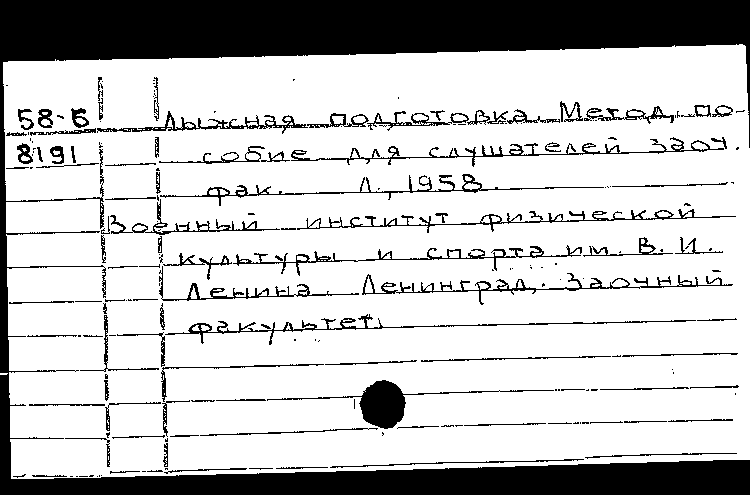 58-5 Лыжная подготовка. Метод, по-
8191 собие для слушателей заоч.
фак. Л., 1958.
Военный институт физической
культуры и спорта им. В. И.
Ленина. Ленинград. Заочный
факультет.